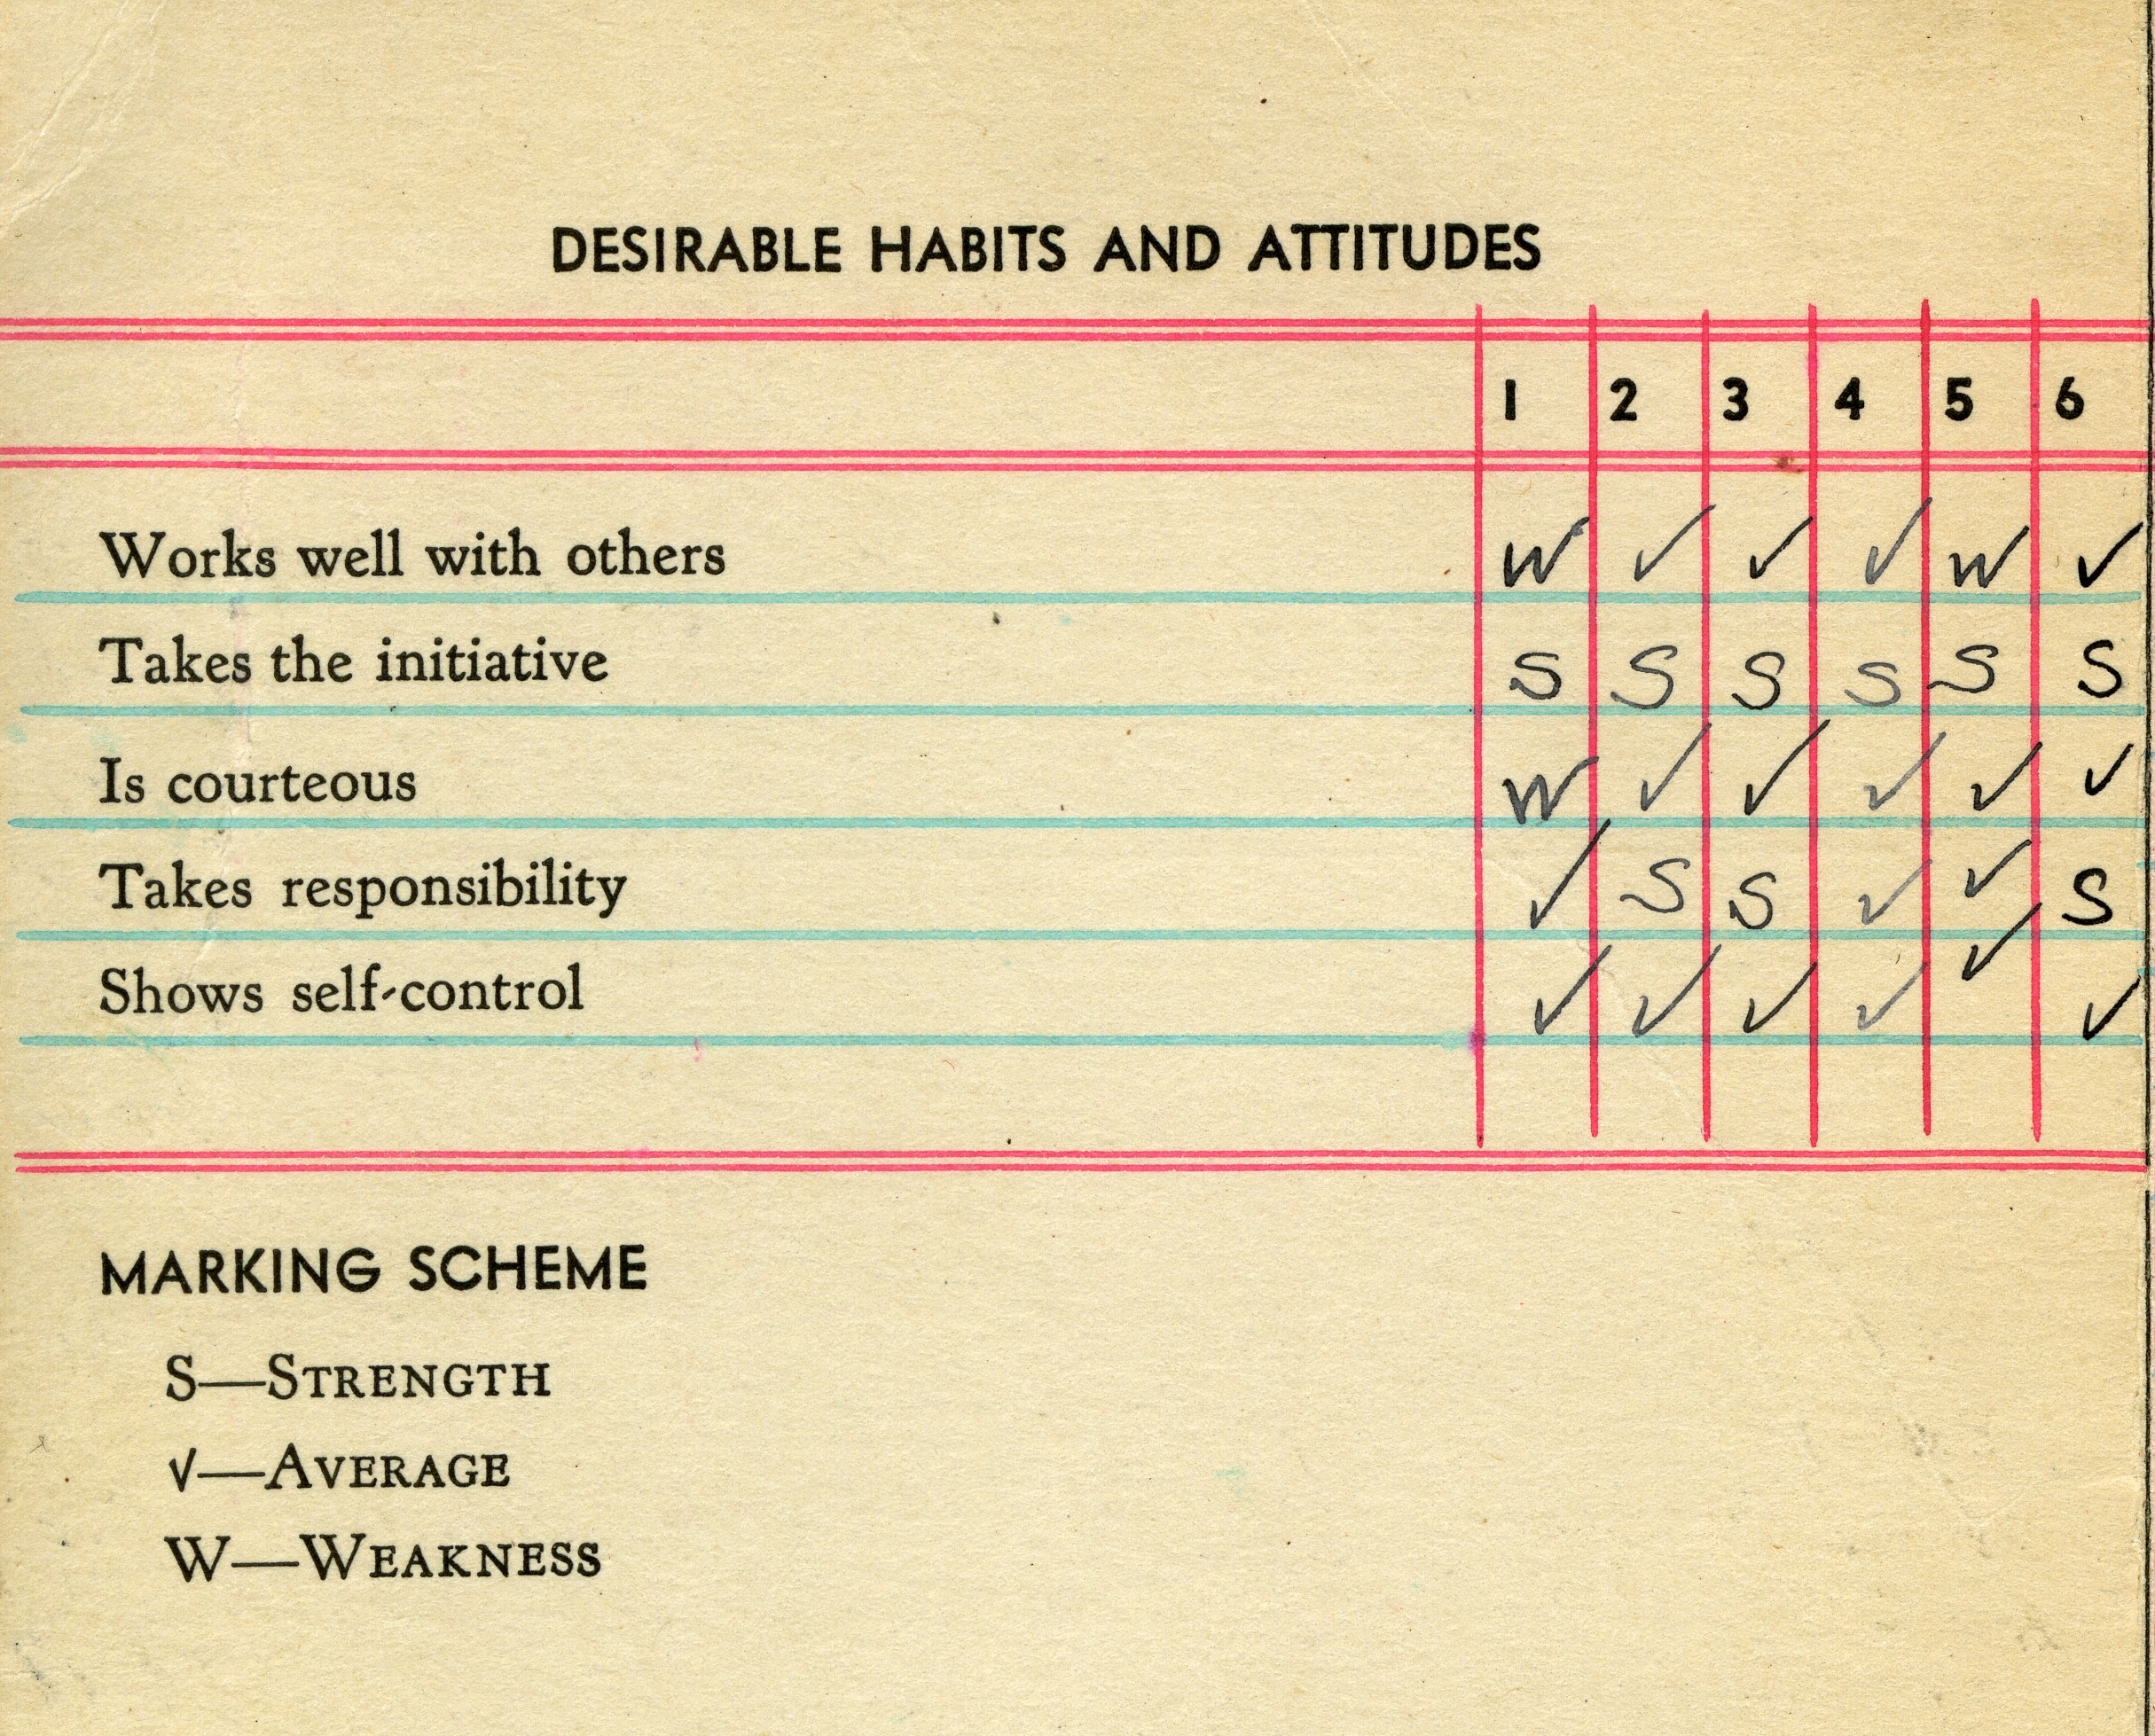 DESIRABLE HABITS AND ATTITUDES
1 2 3 4 5 6
Works well with others W ✓ ✓ ✓ W ✓
Takes the initiative S S S S S S
Is courteous W ✓ ✓ ✓ ✓ ✓
Takes responsibility ✓ S S ✓ ✓ S
Shows self-control ✓ ✓ ✓ ✓ ✓ ✓
MARKING SCHEME
S—STRENGTH
✓—AVERAGE
W—WEAKNESS